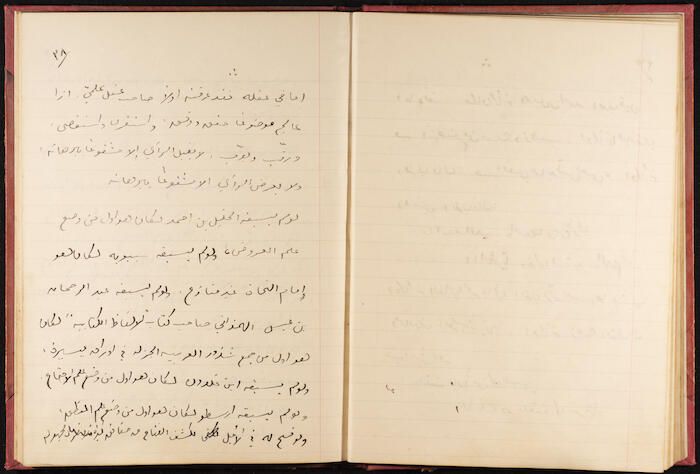 ٣٨
اما في عقله فقد عرفته اولاً صاحب عقل علمي. اذا
عالج موضوعاً حققه ودققه. واستقرى واستقصى،
ورتّب وبوّب. لا يقبل الرأي إلا مشفوعاً ببرهانه،
ولا يعرض الرأي إلا مشفوعاً ببرهانه
لو لم يسبقه الخليل بن احمد لكان هو اول من وضع
علم العروض، ولو لم يسبقه سيبويه لكان هو
إمام النحاة غير منازع. ولو لم يسبقه عبد الرحمان
بن عيسى الهمذاني صاحب كتاب "الألفاظ الكتابية" لكان
هو اول من جمع شذور العربية الجزلة في اوراق يسيرة.
ولو لم يسبقه ابن خلدون لكان هو اول من وضع علم الاجتماع.
ولو لم يسبقه ارسطو لكان هو اول من وضع علم المنطق.
ولو فسح له في الأجل لكشف القناع عن حقائق